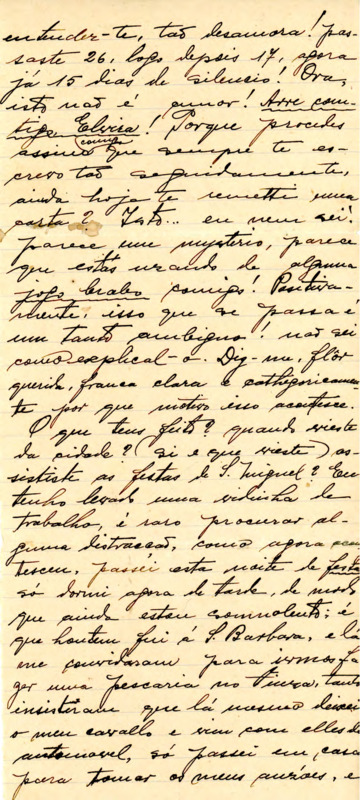 entender-te, tão desamora! pas-
saste 26, logo depois 17, agora
já 15 dias de silencio! Ora,
isto não é amor! Arre com-
tigo Elvira! Porque procedes
assim comigo que sempre te es-
crevo tão seguidamente,
ainda hoje te remetti uma
carta? Isto... eu nem sei:
parece um mysterio, parece
que estás uzando de algum
jogo brabo comigo! Positiva-
mente, isso que se passa é
um tanto ambiguo! não sei
como explical-o. Diz-me, flôr
querida, franca clara e cathegoricamen-
te por que motivo isso acontece.
O que tens feito? quando vieste
da cidade? (si é que vieste) as-
sististe as festas de S. Miguel? Eu
tenho levado uma vidinha de
trabalho, é raro procurar al-
guma distracção, como agora acon
teceu, passei esta noite de festa
só dormi agora de tarde, de modo
que ainda estou somnolento; é
que hontem fui á S. Barbara, e lá
me convidaram para irmos fa
zer uma pescaria no, tanto
insistiram que lá mesmo deixei
o meu cavallo e vim com elles de
automovel, só passei em casa
para tomar os meus anzóes, e